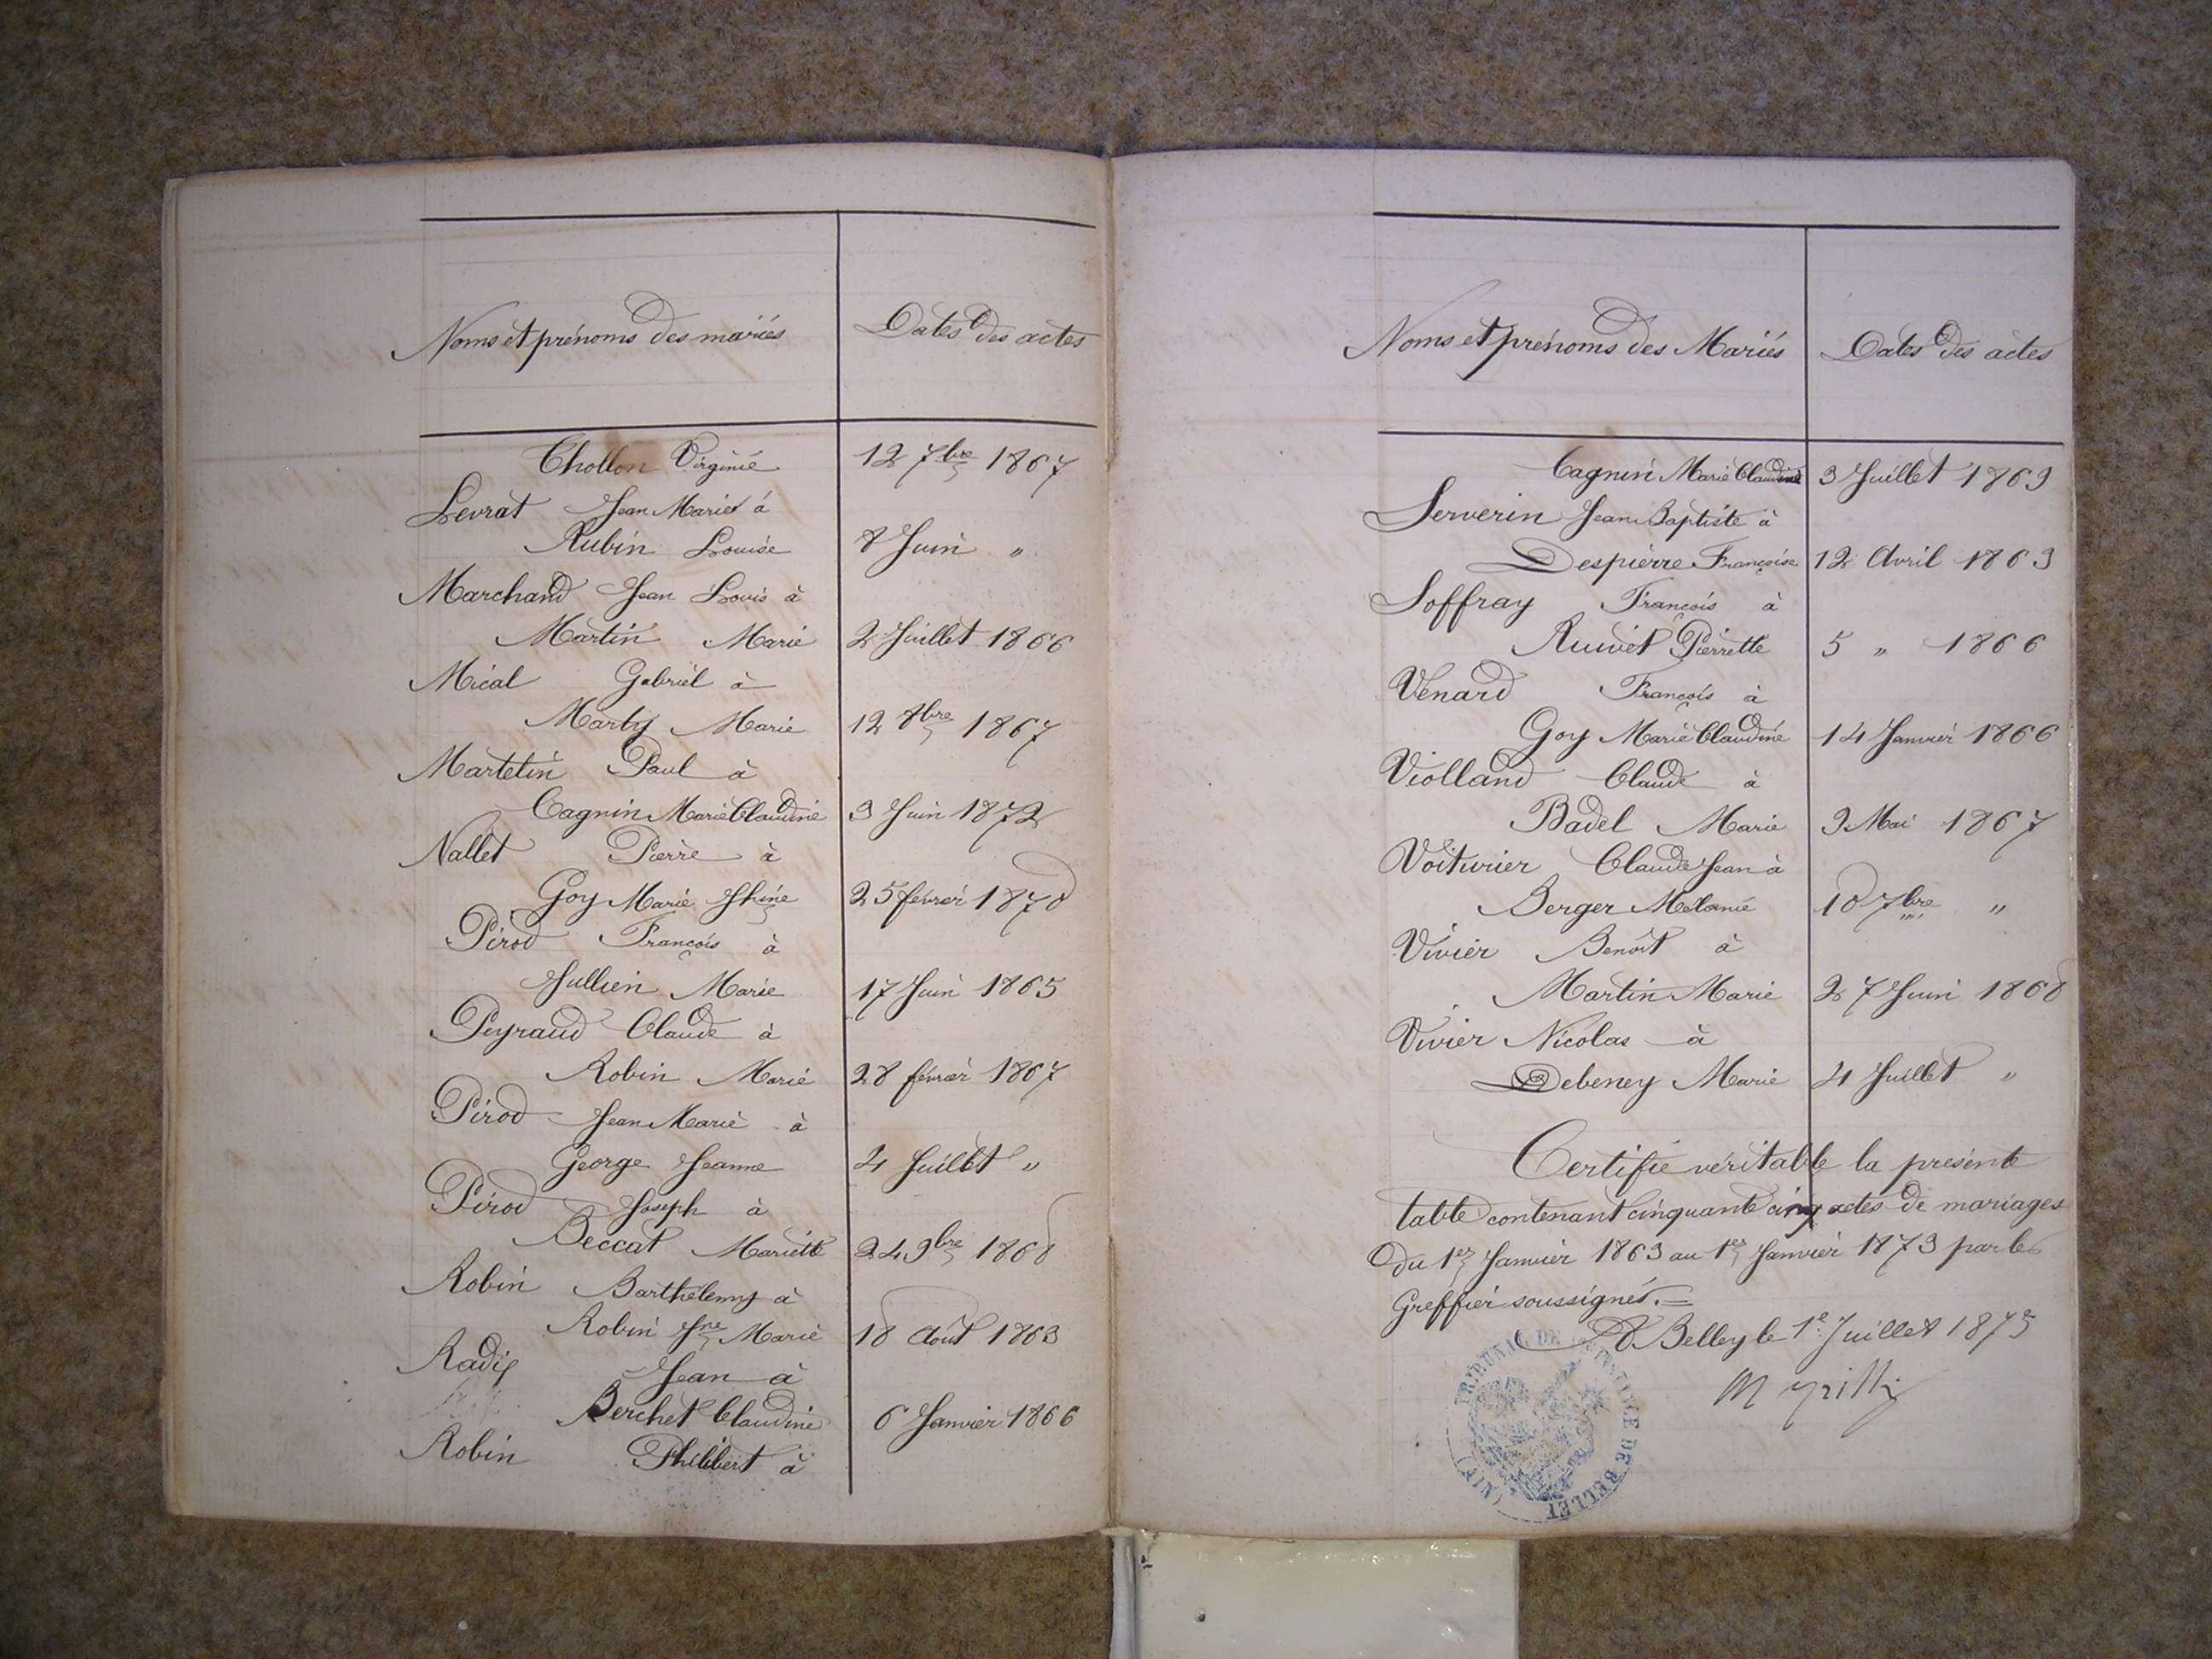 Noms et prénoms des mariés Dates des actes
Chollon Virginie 12 7bre 1867
Levrat Jean Marie à
Rubin Louise 8 Juin "
Marchand Jean Louis à
Martin Marie 2 Juillet 1866
Mical Gabriel à
Marty Marie 12 8bre 1867
Martelin Paul à
Cagnin Marie Claudine 3 Juin 1872
Nallet Pierre à
Goy Marie Jhine 25 février 1870
Pirod François à
Jullien Marie 17 Juin 1865
Peyraud Claude à
Robin Marie 28 février 1867
Pirod Jean Marie à
George Jeanne 4 Juillet "
Pirod Joseph à
Beccat Mariette 24 9bre 1868
Robin Barthélemy à
Robin Jne Marie 18 Août 1863
Radix Jean à
Berchet Claudine 6 Janvier 1866
Robin Philibert à
Noms et prénoms des Mariés Dates des actes
Cagnin Marie Claudine 3 Juillet 1869
Serverin Jean Baptiste à
Despierre Françoise 12 Avril 1863
Soffray François à
Ruivet Pierrette 5 " 1866
Venard François à
Goy Marie Claudine 14 Janvier 1866
Violland Claude à
Badel Marie 9 Mai 1867
Voiturier Claude Jean à
Berger Mélanie 10 7bre "
Vivier Benoît à
Martin Marie 27 Juin 1868
Vivier Nicolas à
Debeney Marie 4 Juillet "
Certifié véritable la présente
table contenant cinquante cinq actes de mariages
du 1er Janvier 1863 au 1er Janvier 1873 par le
Greffier soussigné.
A Belley le 1e Juillet 1875
TRIBUNAL DE 1e INSTANCE DE BELLEY (AIN)